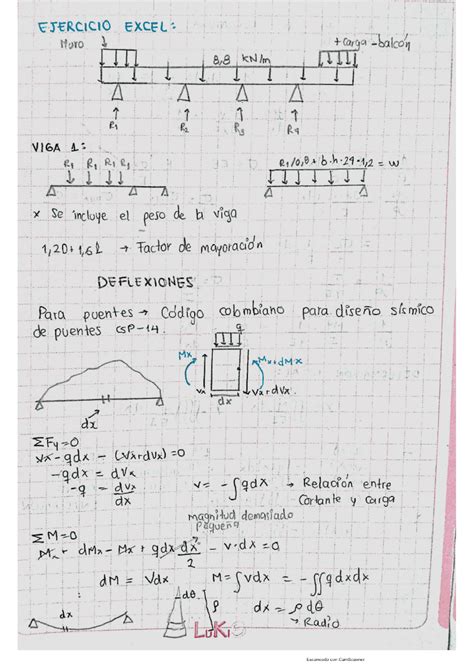 EJERCICIO EXCEL:
Muro
+ carga-balcón
8,8 kN/m
R1 R2 R3 R4
VIGA 1:
R1 R1 R1 R1
R1/0,8 + b·h·24·1,2 = w
x Se incluye el peso de la viga
1,2D+1,6L → Factor de mayoración
DEFLEXIONES
Para puentes → Código colombiano para diseño sísmico
de puentes CSP-14.
q
Mx
Mx+dMx
Vx
Vx+dVx
dx
dx
ΣFy=0
Vx-qdx - (Vx+dVx)=0
-qdx = dVx
-q = dVx/dx
V= -∫qdx → Relación entre
Cortante y carga
magnitud demasiado
pequeña
ΣM=0
Mx + dMx - Mx + qdx dx/2 - V·dx = 0
dM = Vdx
M=∫Vdx = -∫∫qdxdx
dx
dθ
ρ
dx = ρdθ
→ Radio
LuKi
Escaneado con CamScanner